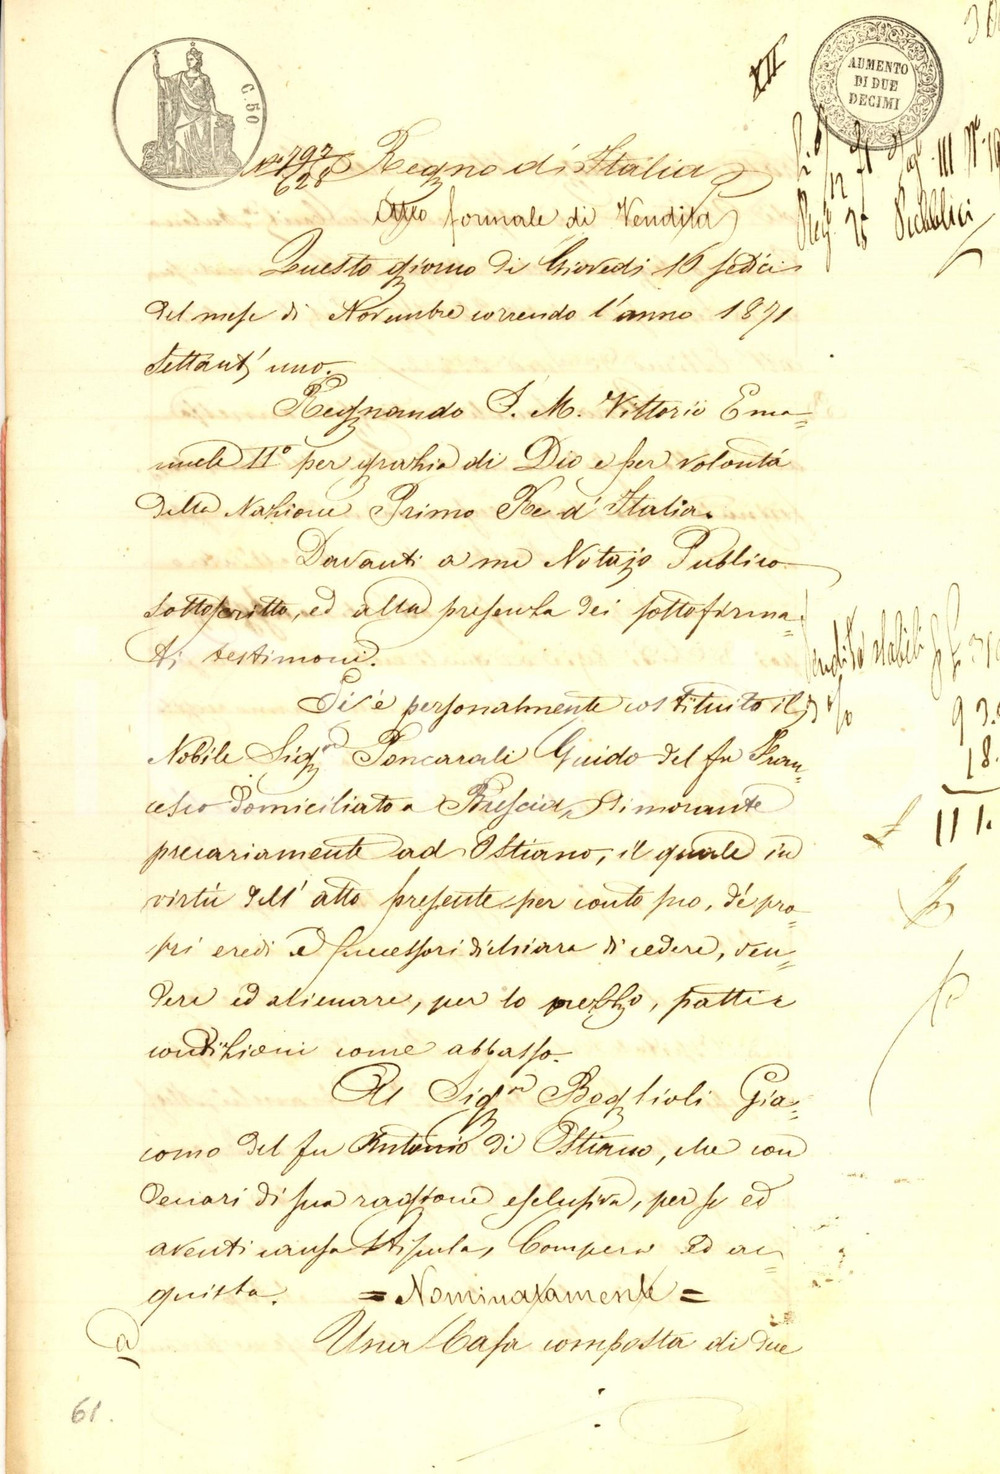 C. 50
AUMENTO
DI DUE
DECIMI
XII
N° 192/628 Regno di Italia
Atto formale di Vendita
Questo giorno di Giovedì 16 sedici
del mese di Novembre correndo l'anno 1871
settant'uno.
Regnando S. M. Vittorio Ema=
nuele II° per grazia di Dio e per volontà
della Nazione Primo Re d'Italia.
Davanti a me Notajo Publico
sottoscritto, ed alla presenza dei sottofirma=
ti testimoni.
Si è personalmente costituito il
Nobile Sigr Poncarali Guido del fu Fran=
cesco domiciliato a Brescia, dimorante
precariamente ad Ostiano, il quale in
virtù dell'atto presente per conto suo, de' pro=
pri eredi e successori dichiara di cedere, ven=
dere ed alienare, per lo prezzo, patti e
condizioni come abbasso.
Al Sigr Boglioli Gia=
como del fu Antonio di Ostiano, che con
denari di sua ragione esclusiva, per se ed
aventi causa stipula, Compera ed ac=
quista. = Nominatamente =
Una Casa composta di due
Vendita stabili
61.